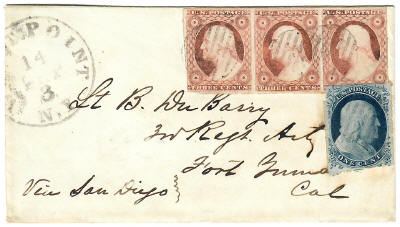 T POINT
14
3
N.Y
U.S. POSTAGE
U.S. POSTAGE
U.S. POSTAGE
THREE CENTS
THREE CENTS
THREE CENTS
U.S. POSTAGE
ONE CENT
Lt B. Du Barry
3rd Regt. Arty
Fort Yuma
Via San Diego
Cal